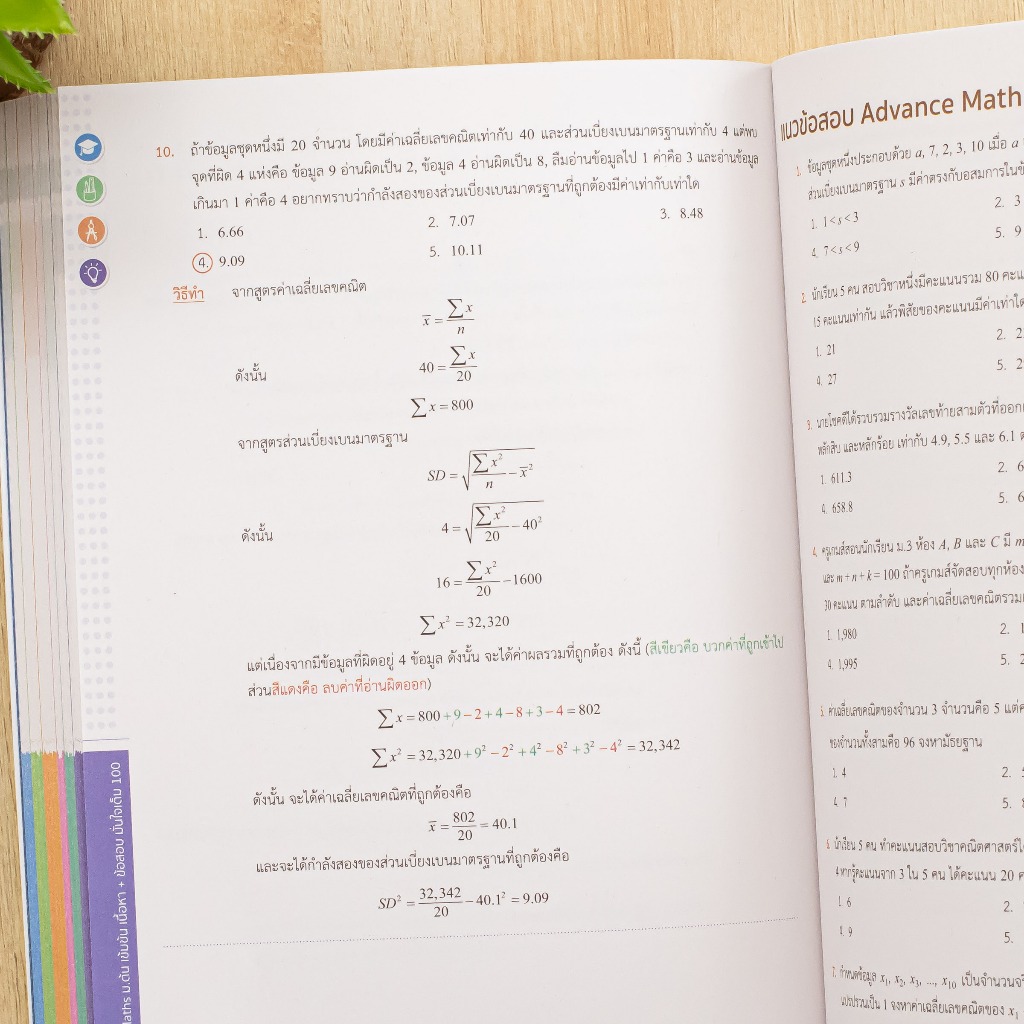 10. ถ้าข้อมูลชุดหนึ่งมี 20 จำนวน โดยมีค่าเฉลี่ยเลขคณิตเท่ากับ 40 และส่วนเบี่ยงเบนมาตรฐานเท่ากับ 4 แต่พบ
จุดที่ผิด 4 แห่งคือ ข้อมูล 9 อ่านผิดเป็น 2, ข้อมูล 4 อ่านผิดเป็น 8, ลืมอ่านข้อมูลไป 1 ค่าคือ 3 และอ่านข้อมูล
เกินมา 1 ค่าคือ 4 อยากทราบว่ากำลังสองของส่วนเบี่ยงเบนมาตรฐานที่ถูกต้องมีค่าเท่ากับเท่าใด
1. 6.66 2. 7.07 3. 8.48
4. 9.09 5. 10.11
วิธีทำ จากสูตรค่าเฉลี่ยเลขคณิต
x̅ = ∑x/n
ดังนั้น 40 = ∑x/20
∑x = 800
จากสูตรส่วนเบี่ยงเบนมาตรฐาน
SD = √(∑x²/n − x̅²)
ดังนั้น 4 = √(∑x²/20 − 40²)
16 = ∑x²/20 − 1600
∑x² = 32,320
แต่เนื่องจากมีข้อมูลที่ผิดอยู่ 4 ข้อมูล ดังนั้น จะได้ค่าผลรวมที่ถูกต้อง ดังนี้ (สีเขียวคือ บวกค่าที่ถูกเข้าไป
ส่วนสีแดงคือ ลบค่าที่อ่านผิดออก)
∑x = 800 + 9 − 2 + 4 − 8 + 3 − 4 = 802
∑x² = 32,320 + 9² − 2² + 4² − 8² + 3² − 4² = 32,342
ดังนั้น จะได้ค่าเฉลี่ยเลขคณิตที่ถูกต้องคือ
x̅ = 802/20 = 40.1
และจะได้กำลังสองของส่วนเบี่ยงเบนมาตรฐานที่ถูกต้องคือ
SD² = 32,342/20 − 40.1² = 9.09
ม.ต้น เข้มข้น เนื้อหา + ข้อสอบ มั่นใจเต็ม 100
แนวข้อสอบ Advance Math
1. ข้อมูลชุดหนึ่งประกอบด้วย a, 7, 2, 3, 10 เมื่อ a
ส่วนเบี่ยงเบนมาตรฐาน s มีค่าตรงกับอสมการใน
1. 1 < s < 3 2. 3
4. 7 < s < 9 5. 9
2. นักเรียน 5 คน สอบวิชาหนึ่งมีคะแนนรวม 80
15 คะแนนเท่ากัน แล้วพิสัยของคะแนนมีค่าเท่าใด
1. 21 2.
4. 27 5.
3. นายโชคดีได้รวบรวมรางวัลเลขท้ายสามตัวที่ออก
หลักสิบ และหลักร้อย เท่ากับ 4.9, 5.5 และ 6.1
1. 611.3 2.
4. 658.8 5.
4. ครูเกมส์สอนนักเรียน ม.3 ห้อง A, B และ C มี m
และ m + n + k = 100 ถ้าครูเกมส์จัดสอบทุกห้อง
30 คะแนน ตามลำดับ และค่าเฉลี่ยเลขคณิตรวม
1. 1,980 2.
4. 1,995 5.
5. ค่าเฉลี่ยเลขคณิตของจำนวน 3 จำนวนคือ 5 แต่
ของจำนวนทั้งสามคือ 96 จงหามัธยฐาน
1. 4 2.
4. 7 5.
6. นักเรียน 5 คน ทำคะแนนสอบวิชาคณิตศาสตร์
4 หากรู้คะแนนจาก 3 ใน 5 คน ได้คะแนน 20
1. 6 2.
4. 9 5.
7. กำหนดข้อมูล x₁, x₂, x₃, ..., x₁₀ เป็นจำนวน
แปรปรวนเป็น 1 จงหาค่าเฉลี่ยเลขคณิตของ x₁